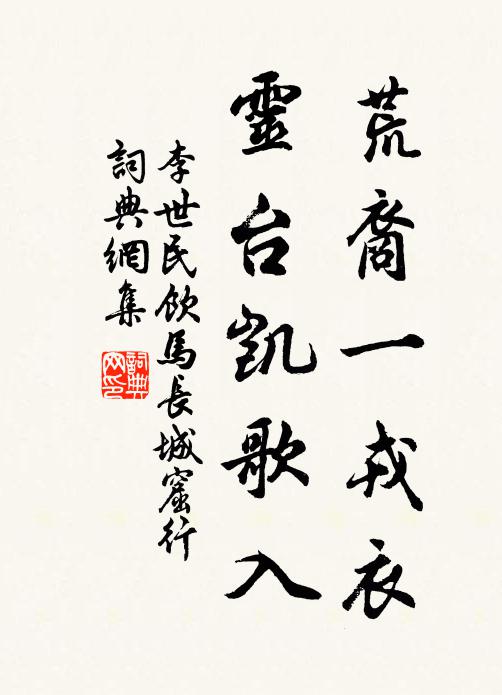 荒裔一戎衣
靈台凱歌入
李世民飲馬長城窟行
詞典網集
詞典
网印